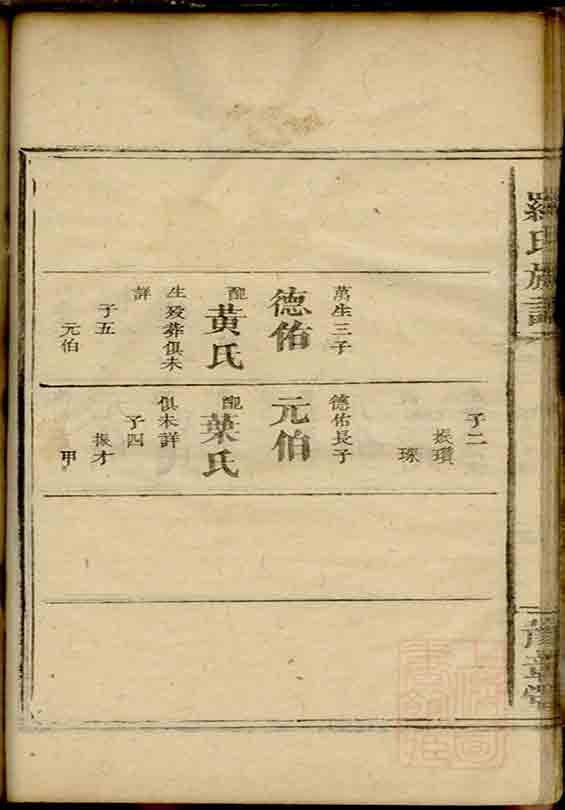 羅氏族譜
萬生三子
德佑
配
黃氏
生歿葬俱未
詳
子五
元伯
子二
琛
德佑長子
元伯
配
葉氏
俱未詳
子四
振才
甲
豫章堂
上海圖
書館藏